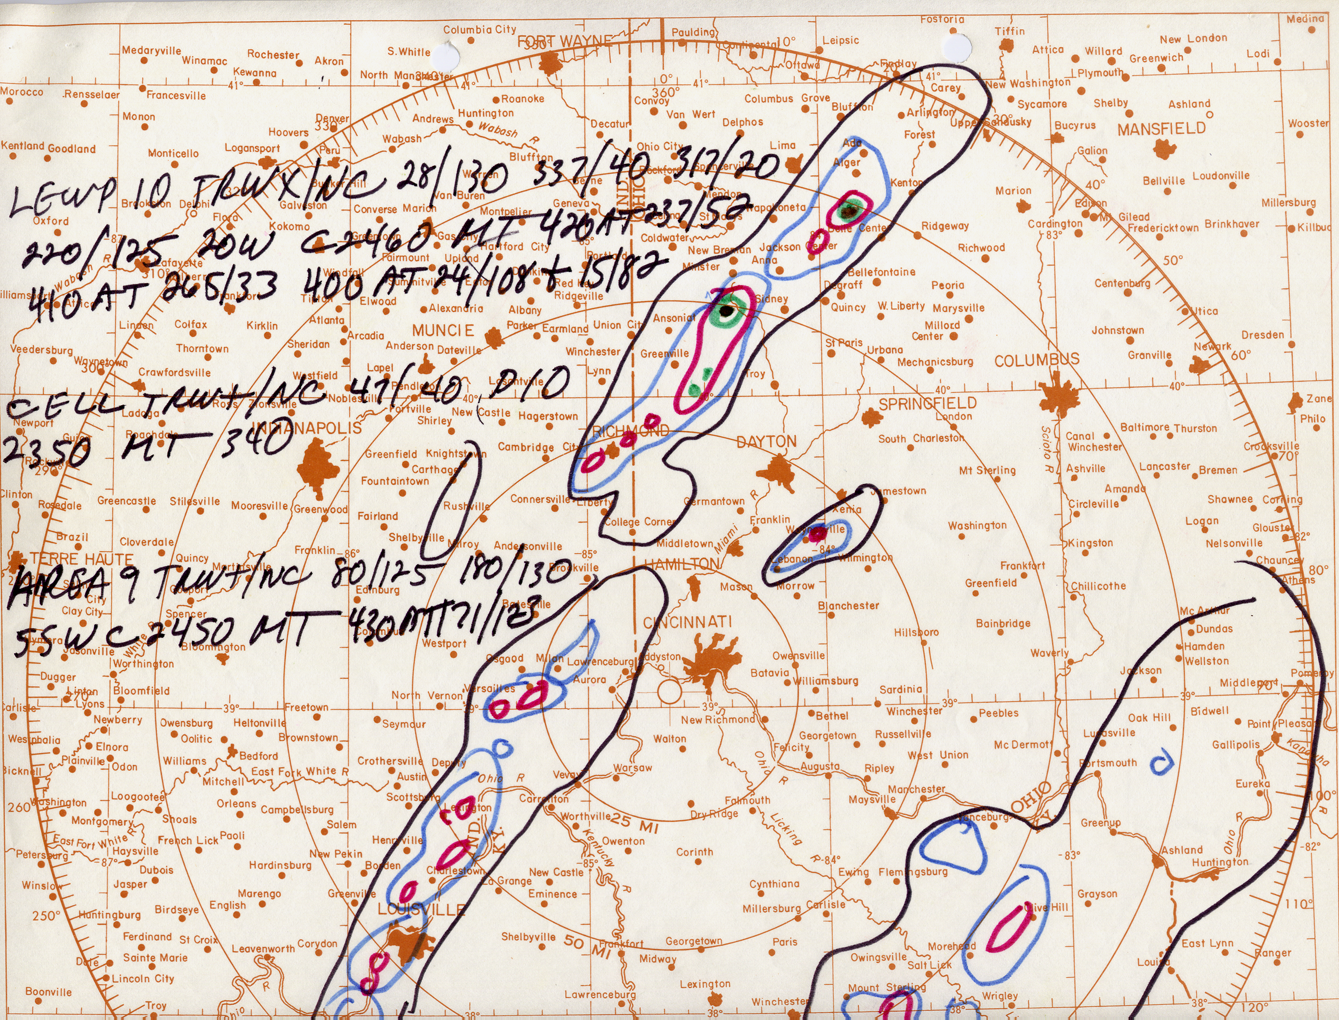 LEWP 10 TRWX/NC 28/130 337/40 317/20
220/125 20W C2460 MT 420 AT 237/52
410 AT 265/33 400 AT 24/108 + 15/82
CELL TRW+/NC 47/40 D10
2350 MT 340
AREA 9 TRW+/NC 80/125 180/130
55W C2450 MT 430 AT 171/123
Columbia City
FORT WAYNE
Paulding
Continental
10°
Leipsic
Fostoria
Tiffin
Medina
Medaryville
Winamac
Rochester
Akron
S.Whitle
Ottawa
Findlay
Attica
Willard
New London
Greenwich
Lodi
Kewanna
North Manchester
0°
41°
Carey
New Washington
Plymouth
Morocco
Rensselaer
Francesville
Roanoke
Convoy
360°
Columbus Grove
Bluffton
Arlington
Sycamore
Shelby
Ashland
Monon
Denver
Andrews
Huntington
Decatur
Van Wert
Delphos
Forest
Upper Sandusky
Bucyrus
MANSFIELD
Wooster
Kentland
Goodland
Monticello
Logansport
Hoovers
Peru
Wabash
Wabash R
Bluffton
Ohio City
Lima
Ada
Alger
Kenton
Marion
Galion
Bellville
Loudonville
Oxford
Flora
Galveston
Converse
Marion
Van Buren
Montpelier
Geneva
Berne
Edison
Mt Gilead
Fredericktown
Brinkhaver
Millersburg
Kokomo
Hartford City
Coldwater
New Bremen
Jackson Center
Belle Center
Ridgeway
Richwood
Fairmount
Upland
Minster
Anna
Bellefontaine
50°
Windfall
Summitville
Ridgeville
Degraff
Peoria
Centerburg
Elwood
Alexandria
Albany
Ansonia
Sidney
Quincy
W.Liberty
Marysville
Utica
Linden
Colfax
Kirklin
Atlanta
Arcadia
MUNCIE
Parker
Farmland
Union City
Milford
Center
Johnstown
Dresden
Veedersburg
Waynetown
Thorntown
Sheridan
Anderson
Dateville
Winchester
Greenville
St Paris
Urbana
Mechanicsburg
COLUMBUS
Granville
Newark
60°
Crawfordsville
Westfield
Lapel
Lynn
Troy
40°
Zanesville
Newport
Ladoga
Fortville
Shirley
New Castle
Hagerstown
SPRINGFIELD
London
Philo
INDIANAPOLIS
Greenfield
Knightstown
Cambridge City
RICHMOND
DAYTON
South Charleston
Canal
Winchester
Baltimore
Thurston
Crooksville
70°
Clinton
Carthage
Fountaintown
Mt Sterling
Ashville
Lancaster
Bremen
Rosedale
Greencastle
Stilesville
Mooresville
Greenwood
Rushville
Connersville
Liberty
Germantown
Jamestown
Circleville
Amanda
Shawnee
Corning
Brazil
Cloverdale
Fairland
Shelbyville
Milroy
Andersonville
College Corner
Franklin
Xenia
Washington
Logan
Glouster
TERRE HAUTE
Quincy
Franklin
-86°
-85°
Middletown
Miami R
Waynesville
-84°
Wilmington
Kingston
Nelsonville
82°
Chauncey
Edinburg
Brookville
HAMILTON
Mason
Lebanon
Morrow
Frankfort
Greenfield
Chillicothe
80°
Athens
Clay City
Spencer
Batesville
CINCINNATI
Blanchester
Bainbridge
Mc Arthur
Dundas
Jasonville
Bloomington
Westport
Hillsboro
Hamden
Wellston
Worthington
Osgood
Milan
Lawrenceburg
Addyston
Owensville
Waverly
Dugger
Linton
Bloomfield
North Vernon
Versailles
Aurora
Batavia
Williamsburg
Sardinia
Jackson
Middleport
Pomeroy
Carlisle
Lyons
39°
Freetown
New Richmond
Winchester
39°
Newberry
Owensburg
Heltonville
Seymour
Bethel
Peebles
Oak Hill
Bidwell
Point Pleasant
Westphalia
Elnora
Oolitic
Brownstown
Walton
Georgetown
Russellville
Plainville
Odon
Williams
Bedford
Crothersville
Deputy
Felicity
West Union
Mc Dermott
Lucasville
Gallipolis
Kanawha R
Bicknell
Mitchell
East Fork White R
Austin
Vevay
Warsaw
Augusta
Ripley
Portsmouth
Eureka
Washington
Loogootee
Orleans
Campbellsburg
Scottsburg
Ohio R
Carrollton
Falmouth
Manchester
Maysville
OHIO
100°
260°
Montgomery
Shoals
Salem
Lexington
Worthville
25 MI
Dry Ridge
Vanceburg
Greenup
East Fork White R
French Lick
Paoli
Owenton
Licking R
Petersburg
Haysville
New Pekin
Henryville
Corinth
-84°
-83°
Ashland
Huntington
-82°
87°
Dubois
Hardinsburg
Borden
Charlestown
-85°
Ewing
Flemingsburg
Winslow
Jasper
Marengo
Greenville
La Grange
New Castle
Cynthiana
Grayson
250°
Huntingburg
Birdseye
English
LOUISVILLE
Eminence
Millersburg
Carlisle
Olive Hill
110°
Ferdinand
St Croix
Leavenworth
Corydon
Shelbyville
50 MI
Frankfort
Georgetown
Paris
Morehead
East Lynn
Dale
Sainte Marie
Midway
Owingsville
Salt Lick
Louisa
Ranger
Lincoln City
Boonville
Troy
Lawrenceburg
Lexington
Winchester
Mount Sterling
Wrigley
120°
38°
38°